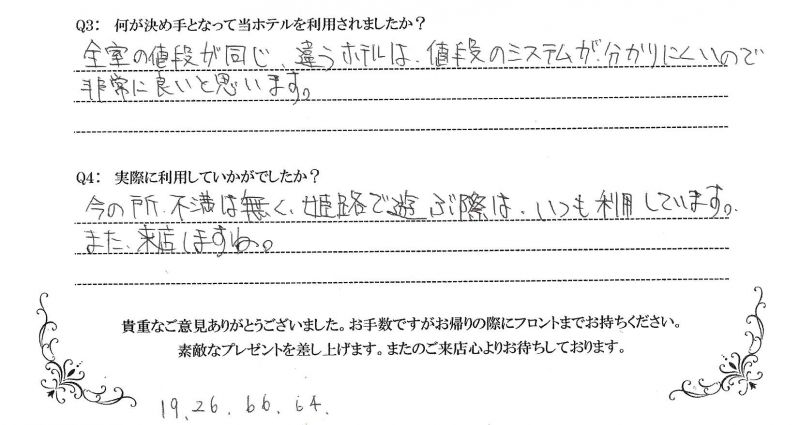 Q3: 何が決め手となって当ホテルを利用されましたか？
全室の値段が同じ、違うホテルは、値段のシステムが分かりにくいので
非常に良いと思います。
Q4: 実際に利用していかがでしたか？
今の所、不満は無く、姫路で遊ぶ際は、いつも利用しています。
また、来店しますね。
貴重なご意見ありがとうございました。お手数ですがお帰りの際にフロントまでお持ちください。
素敵なプレゼントを差し上げます。またのご来店心よりお待ちしております。
19、26、66、64、